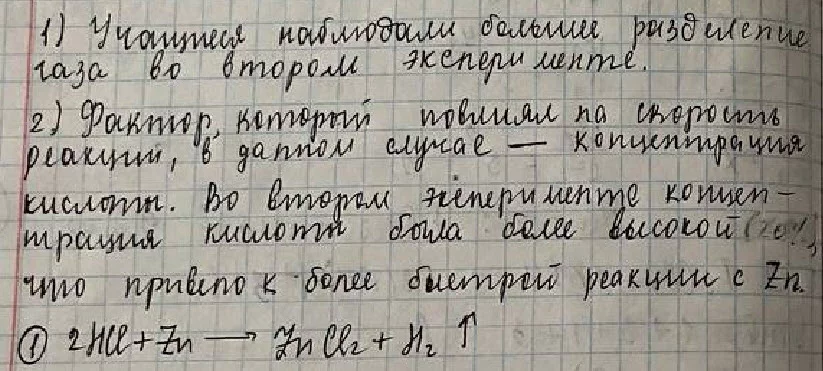 1) Учащиеся наблюдали больше разделение
газа во втором эксперименте.
2) Фактор, который повлиял на скорость
реакции, в данном случае — концентрация
кислоты. Во втором эксперименте концен-
трация кислоты была более высокой (20%),
что привело к более быстрой реакции с Zn.
① 2HCl + Zn → ZnCl₂ + H₂ ↑